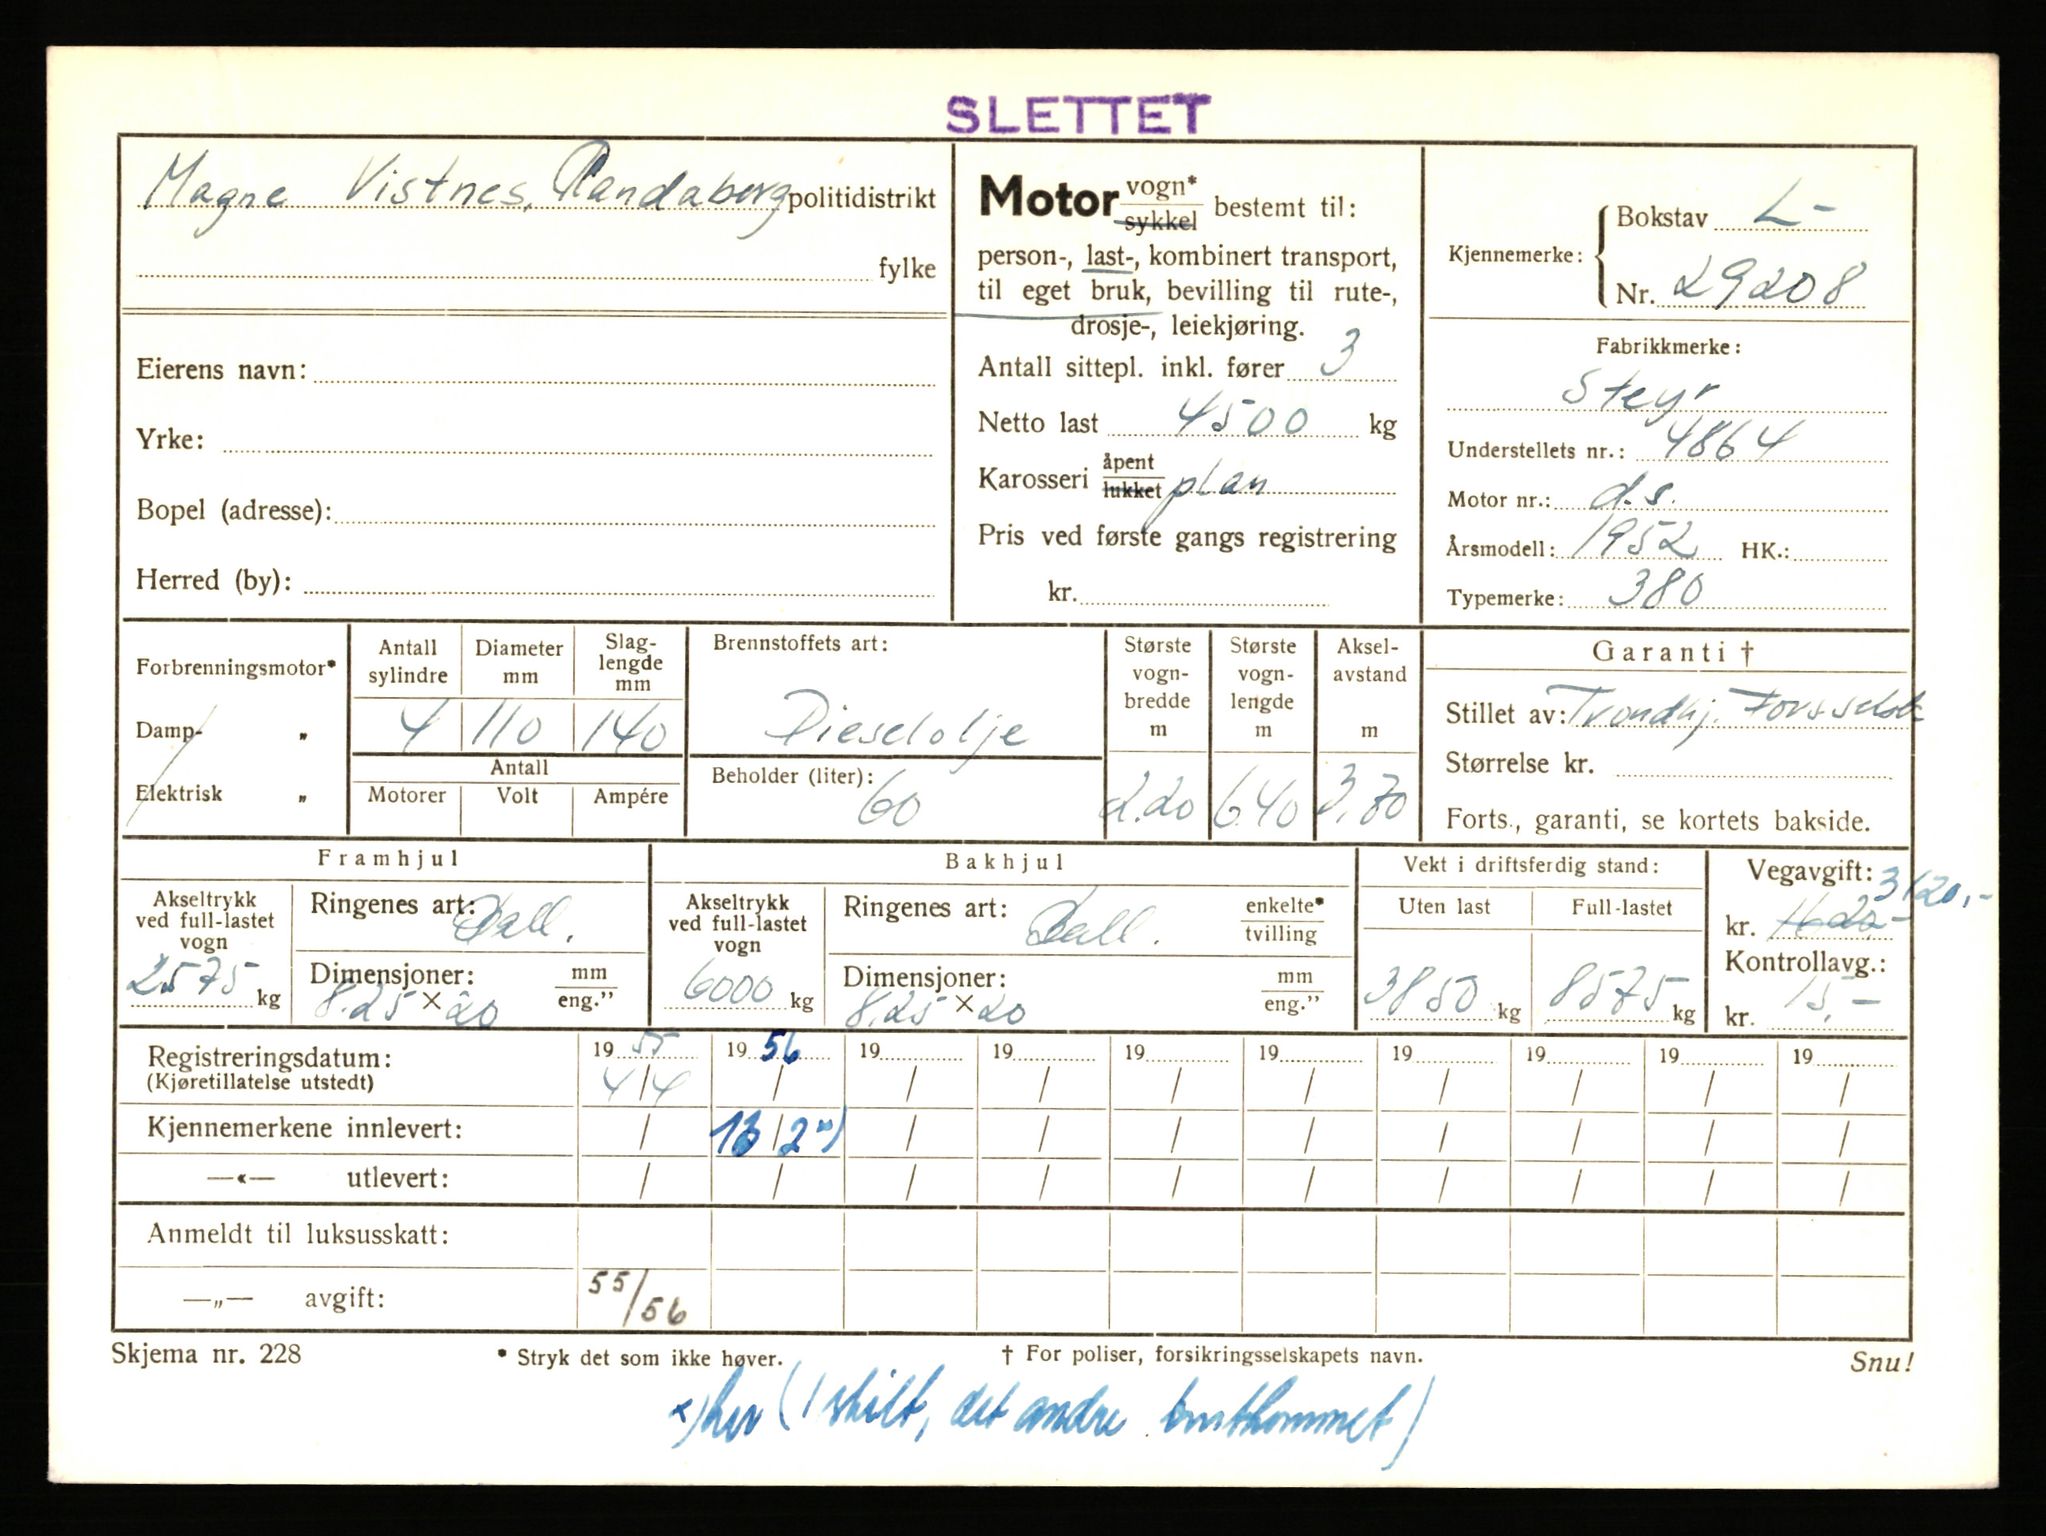 SLETTET
Magne Vistnes, Randaberg politidistrikt
fylke
Eierens navn:
Yrke:
Bopel (adresse):
Herred (by):
Motor vogn* sykkel bestemt til:
person-, last-, kombinert transport,
til eget bruk, bevilling til rute-,
drosje-, leiekjøring.
Antall sittepl. inkl. fører 3
Netto last 4500 kg
Karosseri åpent lukket plan
Pris ved første gangs registrering
kr.
Kjennemerke: Bokstav L-
Nr. 29208
Fabrikkmerke:
Steyr
Understellets nr.: 4864
Motor nr.: d.s.
Årsmodell: 1952 HK.:
Typemerke: 380
Forbrenningsmotor*
Damp- „
Elektrisk „
Antall sylindre Diameter mm Slag-lengde mm
4 110 140
Antall
Motorer Volt Ampére
Brennstoffets art:
Dieselolje
Beholder (liter):
60
Største vogn-bredde m Største vogn-lengde m Aksel-avstand m
2.20 6.40 3,70
Garanti †
Stillet av: Trondhj. Forsselsk
Størrelse kr.
Forts., garanti, se kortets bakside.
Framhjul
Akseltrykk ved full-lastet vogn
2575 kg
Ringenes art: Ball.
Dimensjoner: mm eng."
8.25 × 20
Bakhjul
Akseltrykk ved full-lastet vogn
6000 kg
Ringenes art: Ball. enkelte* tvilling
Dimensjoner: mm eng."
8.25 × 20
Vekt i driftsferdig stand:
Uten last Full-lastet
3850 kg 8575 kg
Vegavgift: 3120,-
kr.
Kontrollavg.:
kr. 15,-
Registreringsdatum: 19 55 19 56 19 19 19 19 19 19 19 19
(Kjøretillatelse utstedt) 4/4 / / / / / / / / /
Kjennemerkene innlevert: / 13/2 x) / / / / / / / /
—«— utlevert: / / / / / / / / / /
Anmeldt til luksusskatt:
—„— avgift: 55/56
Skjema nr. 228 * Stryk det som ikke høver. † For poliser, forsikringsselskapets navn. Snu!
x) her (1 skilt, det andre bortkommet)